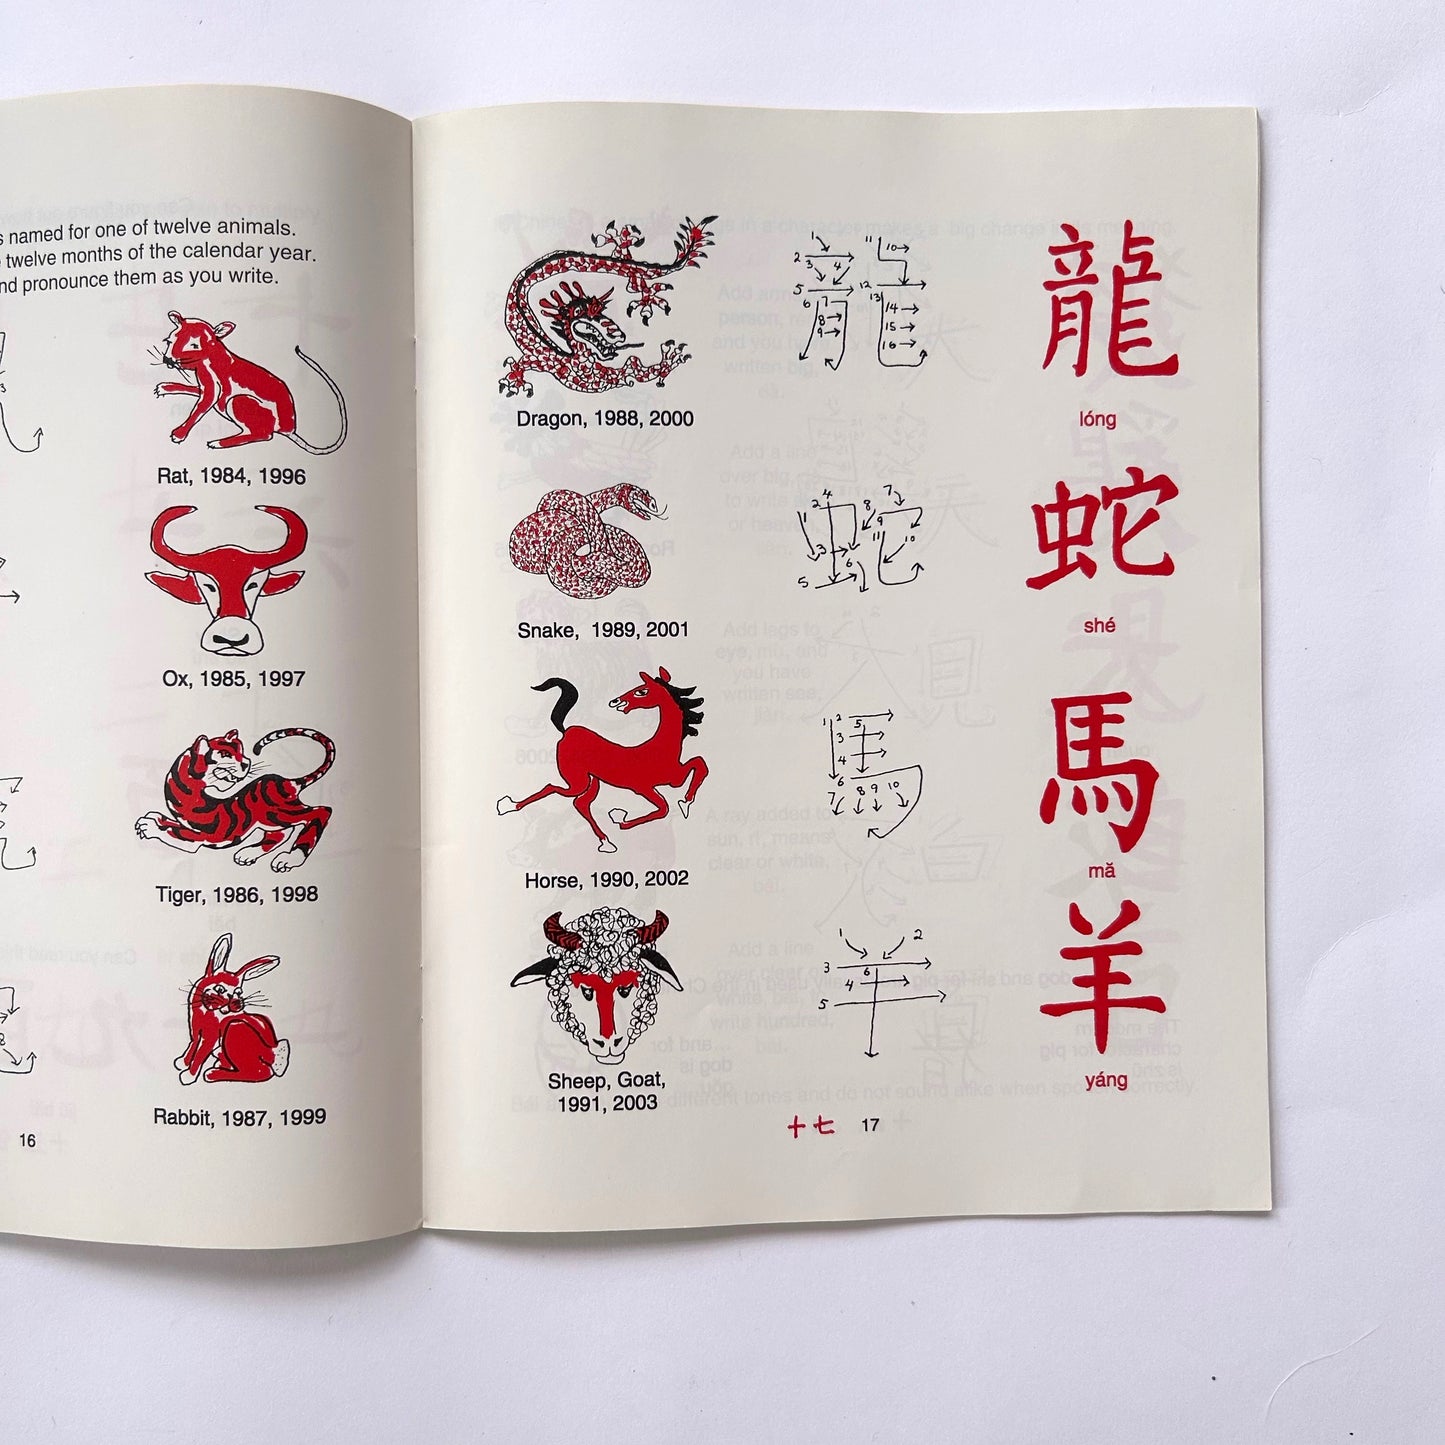 s named for one of twelve animals.
twelve months of the calendar year.
nd pronounce them as you write.
Rat, 1984, 1996
Ox, 1985, 1997
Tiger, 1986, 1998
Rabbit, 1987, 1999
16
Dragon, 1988, 2000
龍
lóng
Snake, 1989, 2001
蛇
shé
Horse, 1990, 2002
馬
mă
Sheep, Goat,
1991, 2003
羊
yáng
十七 17